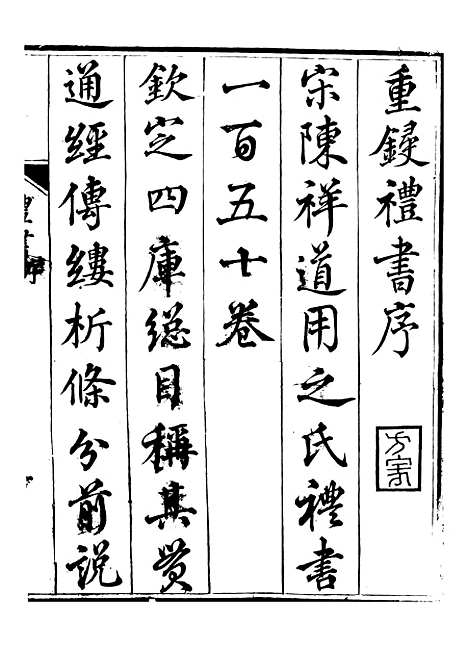 重鋟禮書序
宋陳祥道用之氏禮書
一百五十卷
欽定四庫總目稱其貫
通經傳縷析條分前說
禮書序